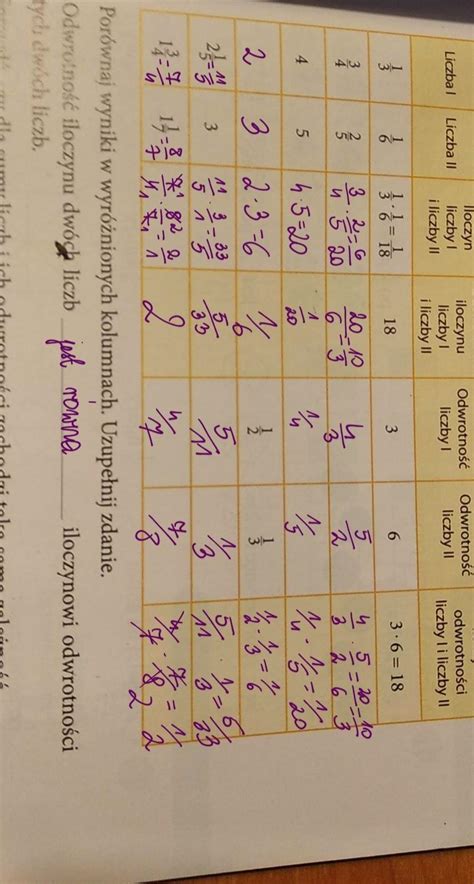 Liczba I | Liczba II | Iloczyn liczby I i liczby II | iloczynu liczby I i liczby II | Odwrotność liczby I | Odwrotność liczby II | odwrotności liczby I i liczby II
1/3 | 1/6 | 1/3 · 1/6 = 1/18 | 18 | 3 | 6 | 3 · 6 = 18
3/4 | 2/5 | 3/4 · 2/5 = 6/20 | 20/6 = 10/3 | 4/3 | 5/2 | 4/3 · 5/2 = 20/6 = 10/3
4 | 5 | 4 · 5 = 20 | 1/20 | 1/4 | 1/5 | 1/4 · 1/5 = 1/20
2 | 3 | 2 · 3 = 6 | 1/6 | 1/2 | 1/3 | 1/2 · 1/3 = 1/6
2 1/5 = 11/5 | 3 | 11/5 · 3/1 = 33/5 | 5/33 | 5/11 | 1/3 | 5/11 · 1/3 =
1 3/4 = 7/4 | 1 1/7 = 8/7 | = 2/1 | 2 | 4/7 | 7/8 | 4/7 · 7/8 = 1/2
Porównaj wyniki w wyróżnionych kolumnach. Uzupełnij zdanie.
Odwrotność iloczynu dwóch liczb jest równa iloczynowi odwrotności
tych dwóch liczb.